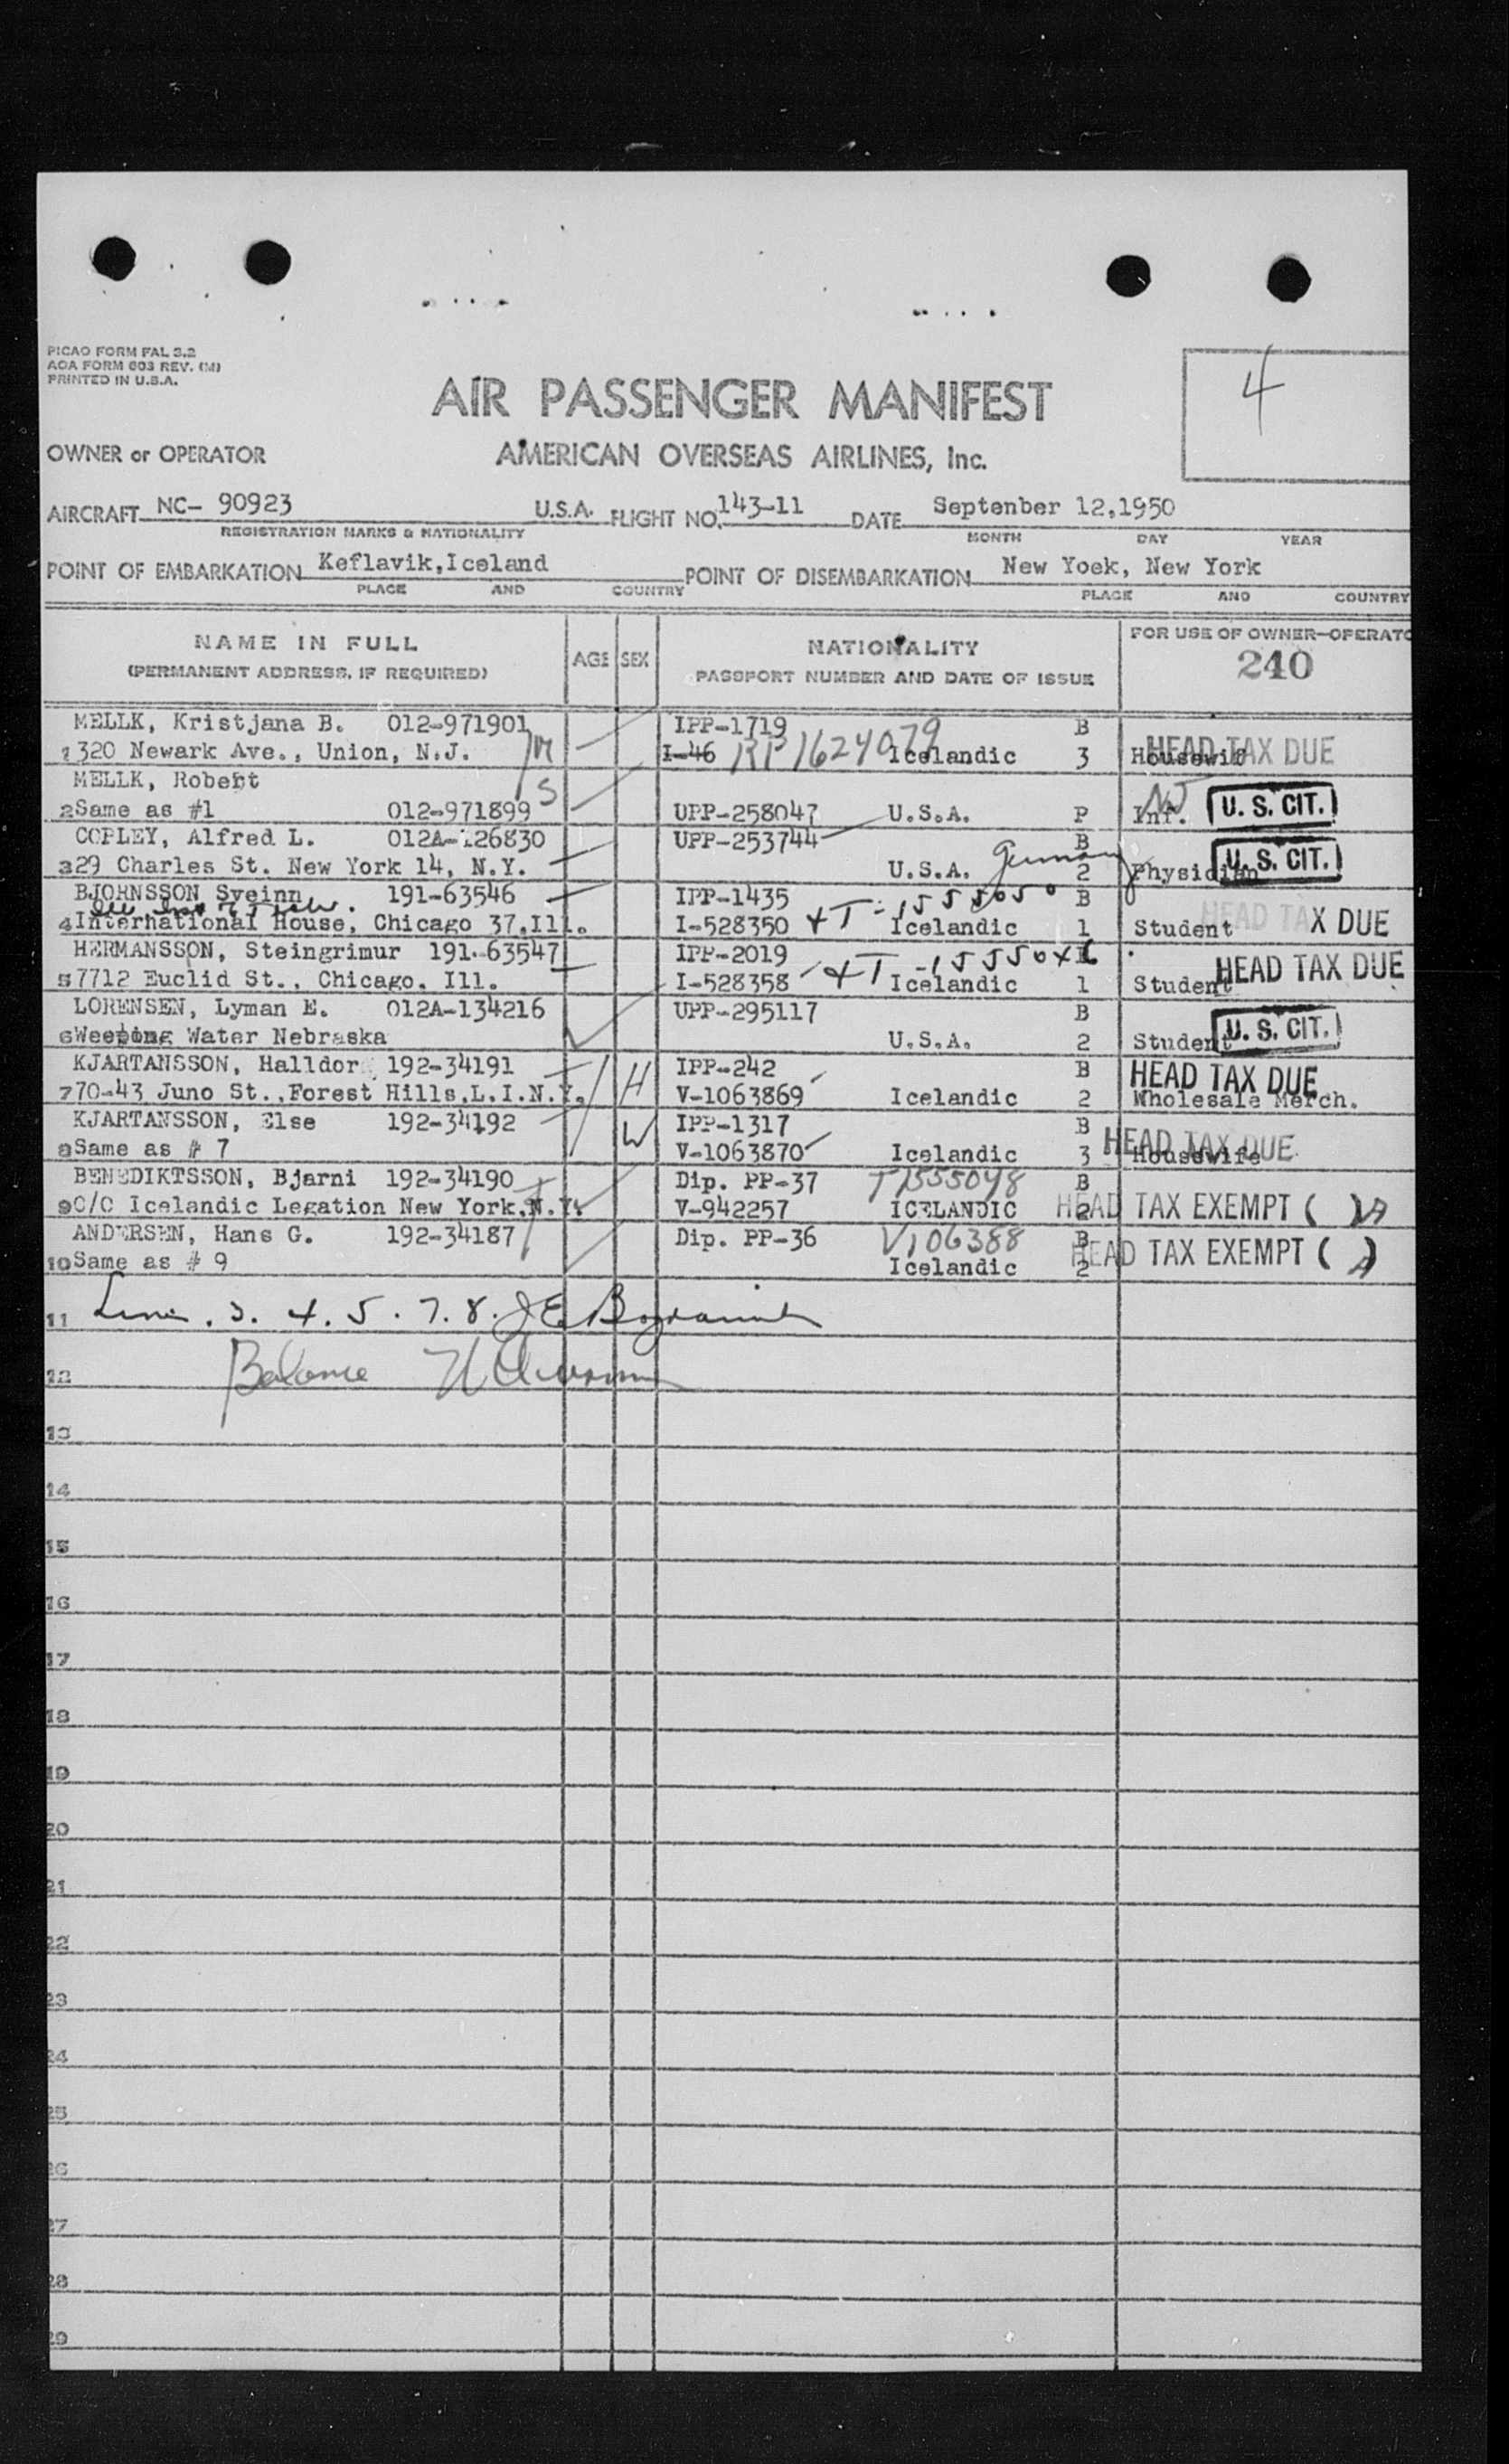 PICAO FORM FAL 3.2
AOA FORM 603 REV. (M)
PRINTED IN U.S.A.
4
AIR PASSENGER MANIFEST
OWNER or OPERATOR AMERICAN OVERSEAS AIRLINES, Inc.
AIRCRAFT NC- 90923 U.S.A. FLIGHT NO. 143-11 DATE Septenber 12,1950
REGISTRATION MARKS & NATIONALITY MONTH DAY YEAR
POINT OF EMBARKATION Keflavik,Iceland POINT OF DISEMBARKATION New Yoek, New York
PLACE AND COUNTRY PLACE AND COUNTRY
NAME IN FULL AGE SEX NATIONALITY FOR USE OF OWNER-OPERATO
(PERMANENT ADDRESS, IF REQUIRED) PASSPORT NUMBER AND DATE OF ISSUE 240
MELLK, Kristjana B. 012-971901 IPP-1719 B
1 320 Newark Ave., Union, N.J. M I-46 RP 1624079 Icelandic 3 Housewif HEAD TAX DUE
MELLK, Robert S
2 Same as #1 012-971899 UPP-258047 U.S.A. P Inf. NJ U. S. CIT.
COPLEY, Alfred L. 012A-126830 UPP-253744 B
3 29 Charles St. New York 14, N.Y. U.S.A. Germany 2 Physician U. S. CIT.
BJORNSSON Sveinn 191-63546 IPP-1435 B
4 International House, Chicago 37,Ill. I-528350 Icelandic 1 Student HEAD TAX DUE
HERMANSSON, Steingrimur 191-63547 IPP-2019
5 7712 Euclid St., Chicago, Ill. I-528358 Icelandic 1 Student HEAD TAX DUE
LORENSEN, Lyman E. 012A-134216 UPP-295117 B
6 Weeping Water Nebraska U.S.A. 2 Student U. S. CIT.
KJARTANSSON, Halldor 192-34191 IPP-242 B HEAD TAX DUE
7 70-43 Juno St.,Forest Hills,L.I.N.Y. H V-1063869 Icelandic 2 Wholesale Merch.
KJARTANSSON, Else 192-34192 IPP-1317 B
8 Same as # 7 W V-1063870 Icelandic 3 Housewife HEAD TAX DUE
BENEDIKTSSON, Bjarni 192-34190 Dip. PP-37 T1555048 B
9 C/C Icelandic Legation New York,N.Y. V-942257 ICELANDIC 2 HEAD TAX EXEMPT ( )
ANDERSEN, Hans G. 192-34187 Dip. PP-36 V106388 B
10 Same as # 9 Icelandic 2 HEAD TAX EXEMPT ( )
11 3. 4. 5. 7. 8.
12 Balance
13
14
15
16
17
18
19
20
21
22
23
24
25
26
27
28
29